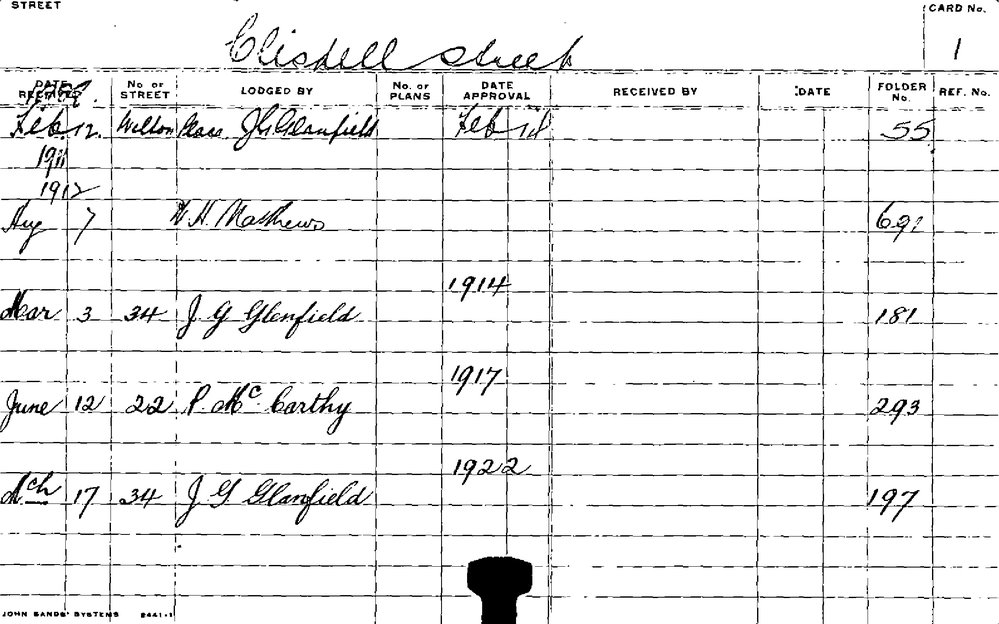 STREET
CARD No.
Clisdell Street
1
DATE RECEIVED No. OF STREET LODGED BY No. OF PLANS DATE APPROVAL RECEIVED BY DATE FOLDER No. REF. No.
Feb. 12. Wilton Place J G Glanfield Feb 14 55
1911
1912
Aug 7 W. H. Mathews 691
1914
Mar 3 34 J. G Glenfield 181
1917
June 12 22 P. Mc Carthy 293
1922
Mch 17 34 J G Glanfield 197
JOHN SANDS' SYSTEMS 2441-1